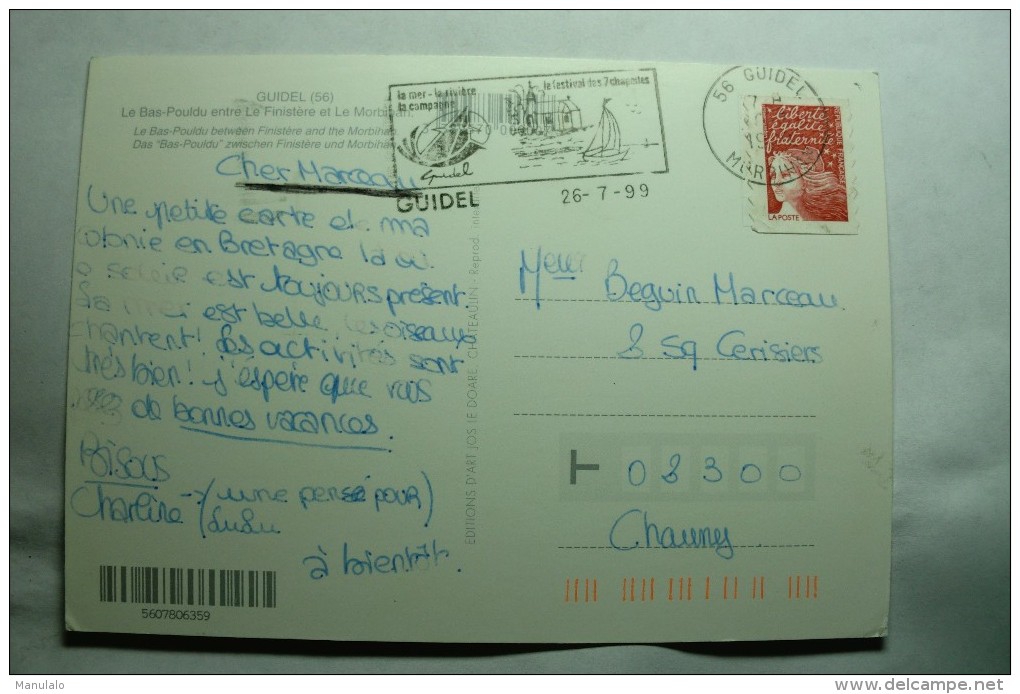 GUIDEL (56)
Le Bas-Pouldu entre Le Finistère et Le Morbihan.
Le Bas-Pouldu between Finistère and the Morbihan
Das "Bas-Pouldu" zwischen Finistère und Morbihan
la mer - la rivière
la campagne
le festival des 7 chapelles
Guidel
GUIDEL
26-7-99
56 GUIDEL
liberté
égalité
fraternité
LA POSTE
Cher Marceau
Une petite carte de ma
colonie en Bretagne là où
le soleil est toujours présent.
La mer est belle, les oiseaux
chantent! Les activités sont
très bien! j'espère que vous
de bonnes vacances.
Bisous
Charline → (une pensé pour)
(Lulu
à bientôt.
5607806359
EDITIONS D'ART JOS LE DOARE CHATEAULIN - Reprod. inter
Beguin Marceau
8 sq Cerisiers
T 0 2 3 0 0
Chauny
Manulalo
www.delcampe.net